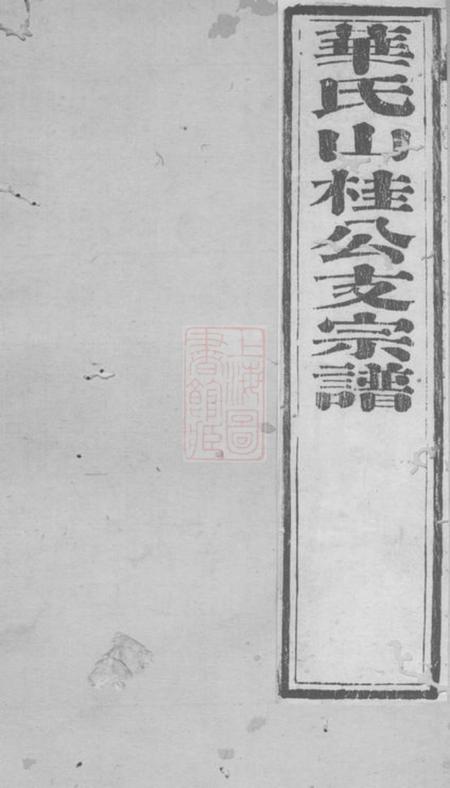 華氏山桂公支宗譜
上海圖
書館藏